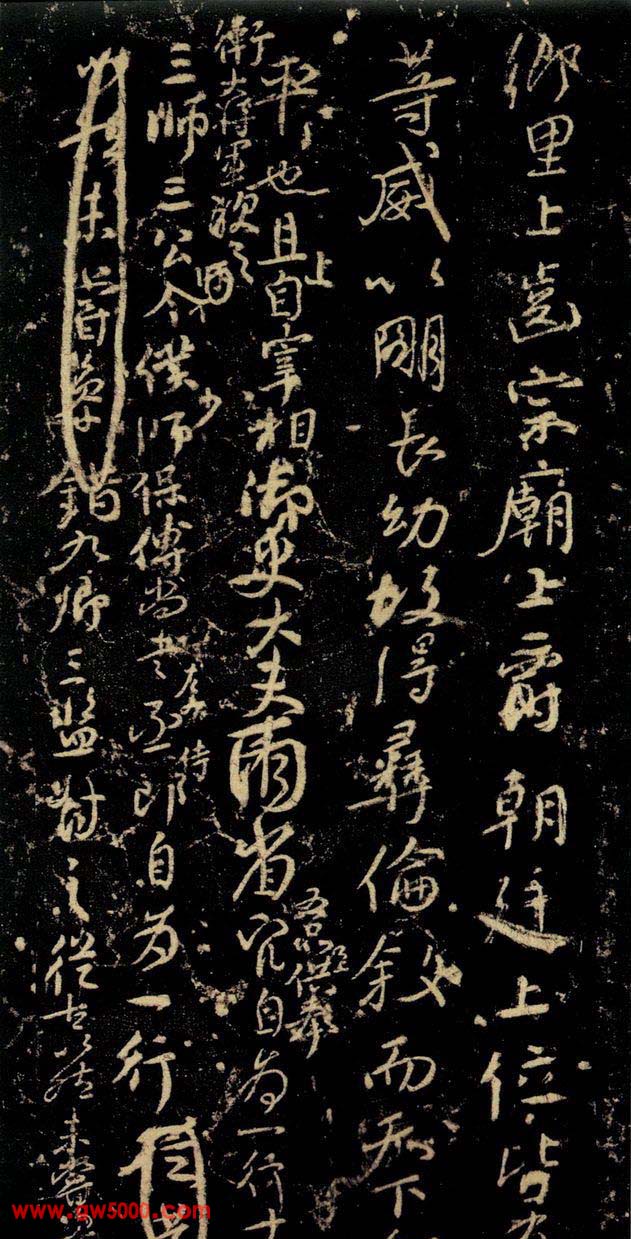 鄉里上齒宗廟上爵朝廷上位皆
等威以明長幼故得彝倫敘而天下
平也且上自宰相御史大夫兩省五品以上供奉官自為一行十
衛大將軍次之
三師三公令僕少師保傅尚書左右丞侍郎自為一行
未嘗參錯九卿三監對之從古以然未嘗
www.gw5000.com